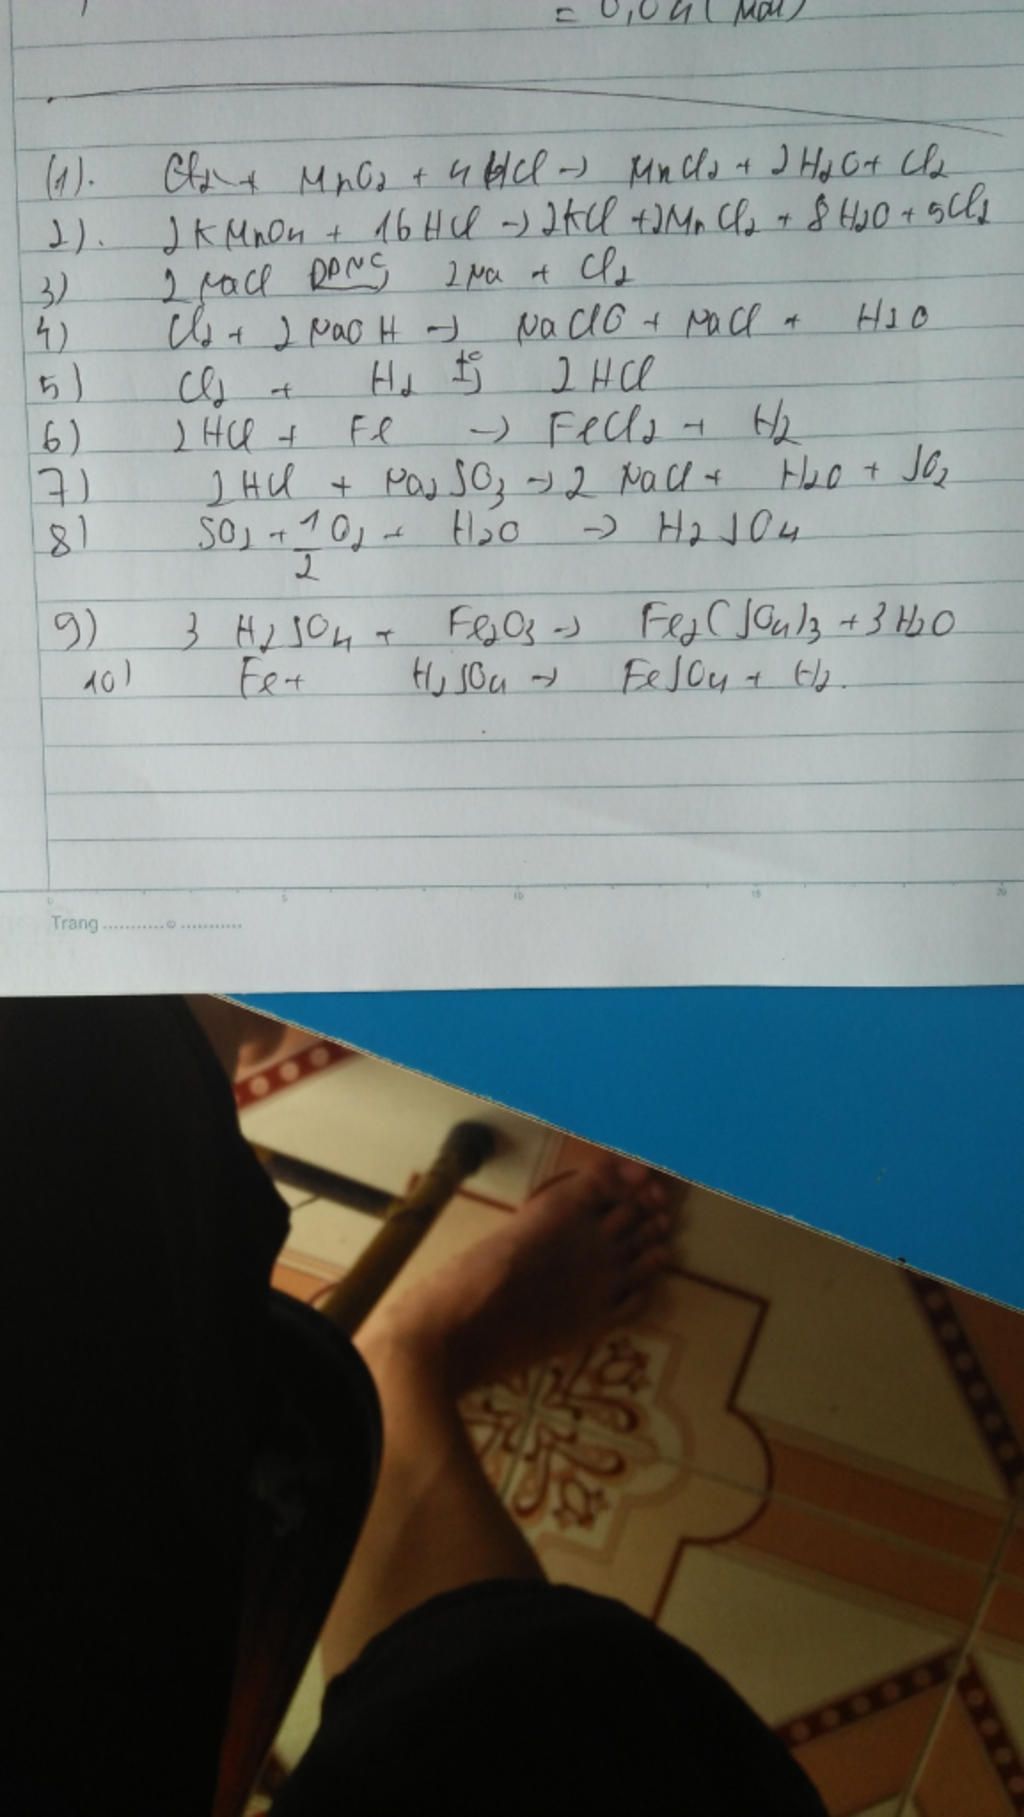 = 0,04 (mol)
(1). Cl2 + MnO2 + 4HCl → MnCl2 + 2H2O + Cl2
2). 2KMnO4 + 16HCl → 2KCl + 2MnCl2 + 8H2O + 5Cl2
3) 2NaCl ĐPNC 2Na + Cl2
4) Cl2 + 2NaOH → NaClO + NaCl + H2O
5) Cl2 + H2 t° → 2HCl
6) 2HCl + Fe → FeCl2 + H2
7) 2HCl + Na2SO3 → 2 NaCl + H2O + SO2
8) SO2 + 1/2 O2 + H2O → H2SO4
9) 3 H2SO4 + Fe2O3 → Fe2(SO4)3 + 3H2O
10) Fe + H2SO4 → FeSO4 + H2.
0 5 10 15 20
Trang ...........⊙...........